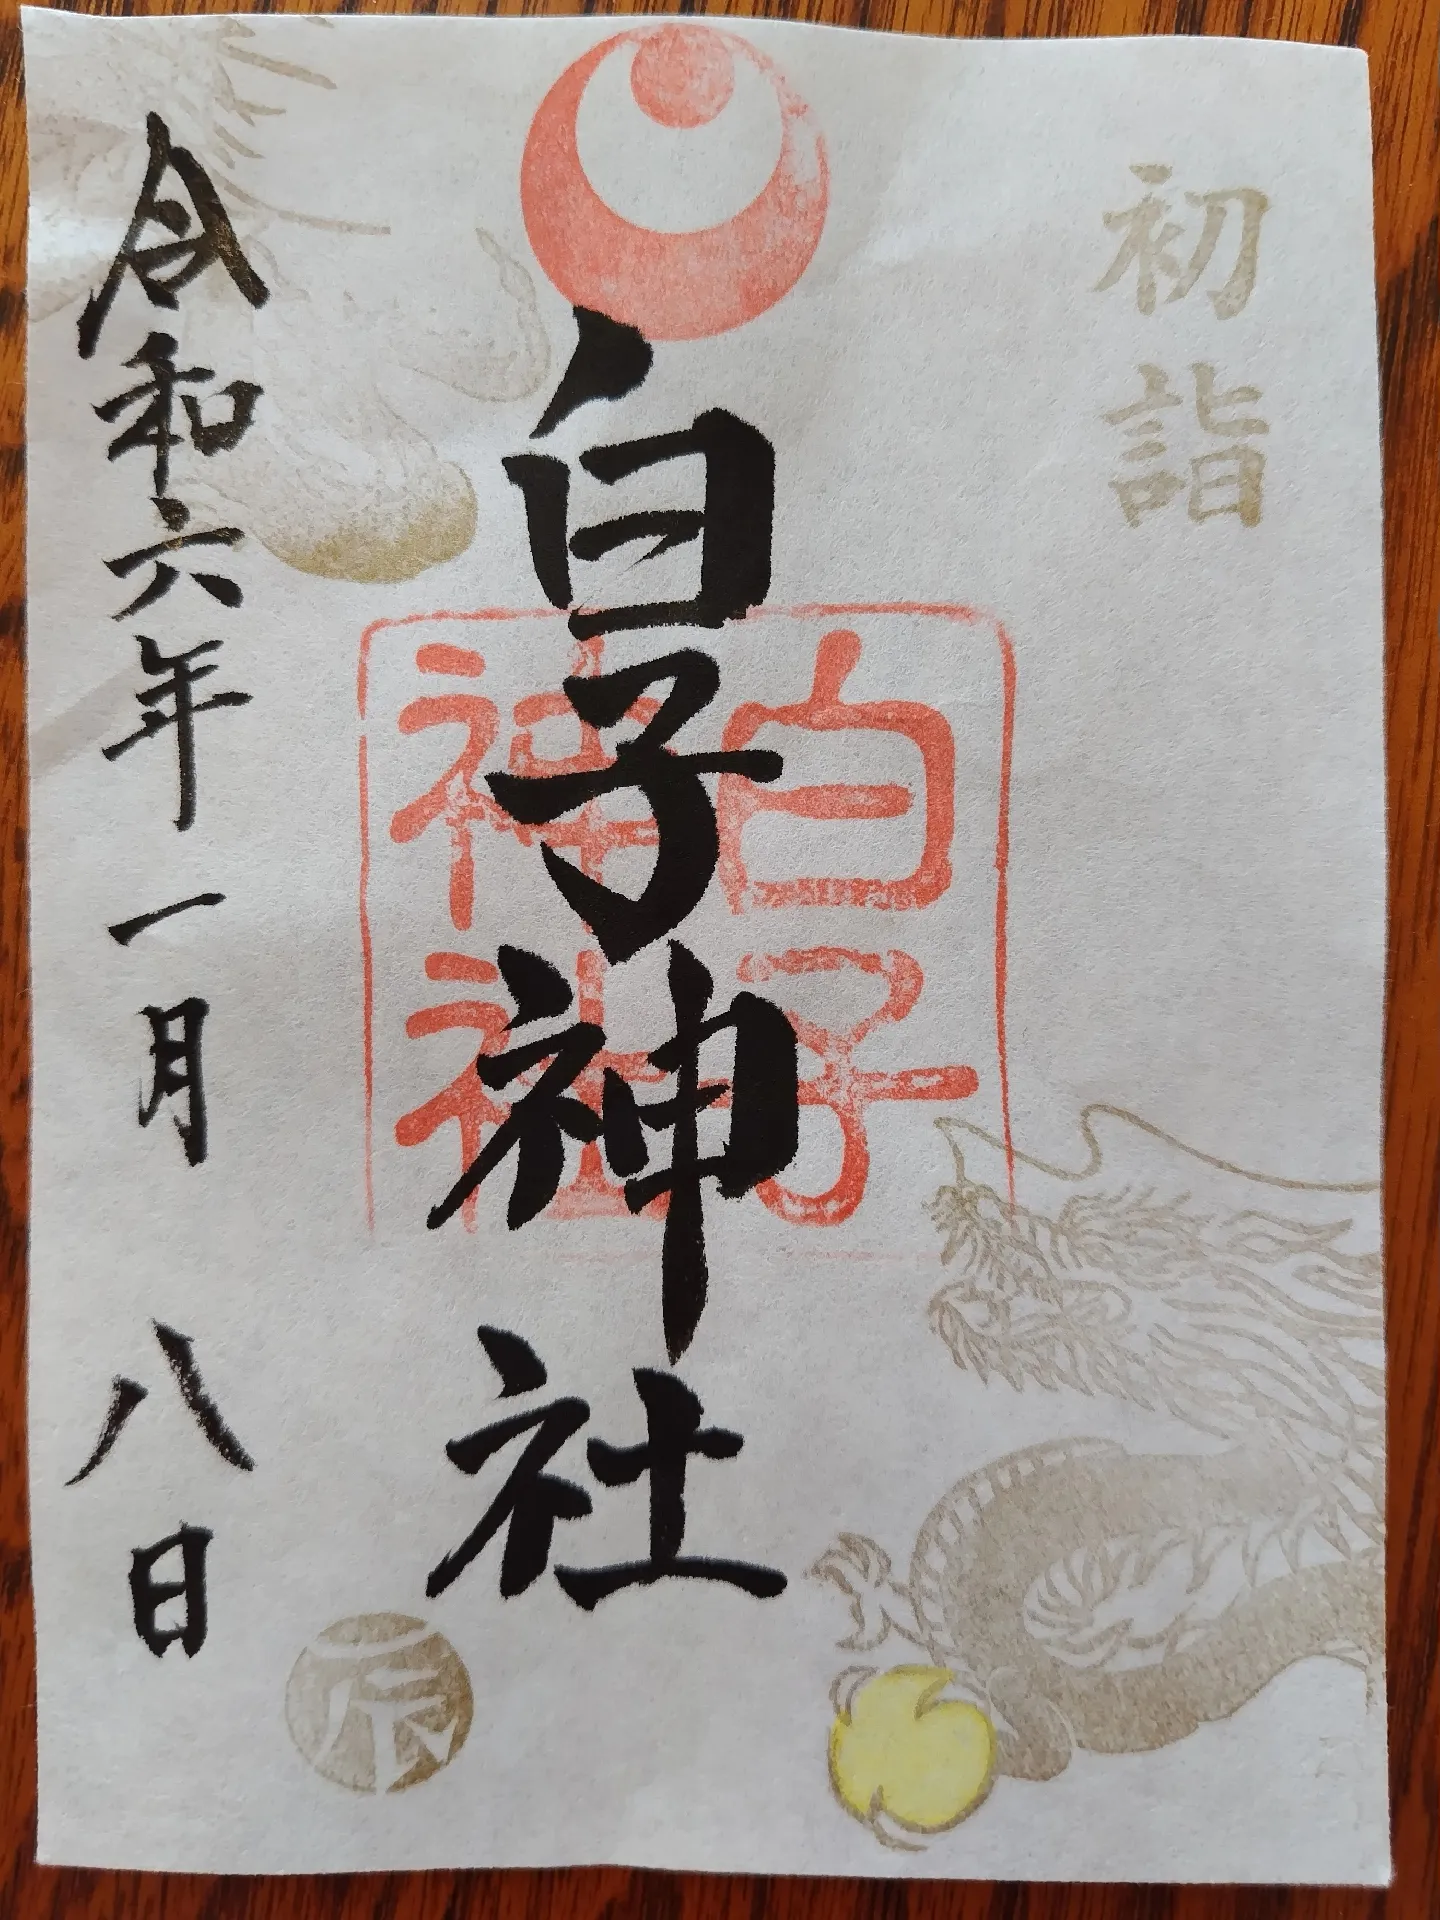 初詣
白子神社
白子
神社
令和六年一月八日
辰